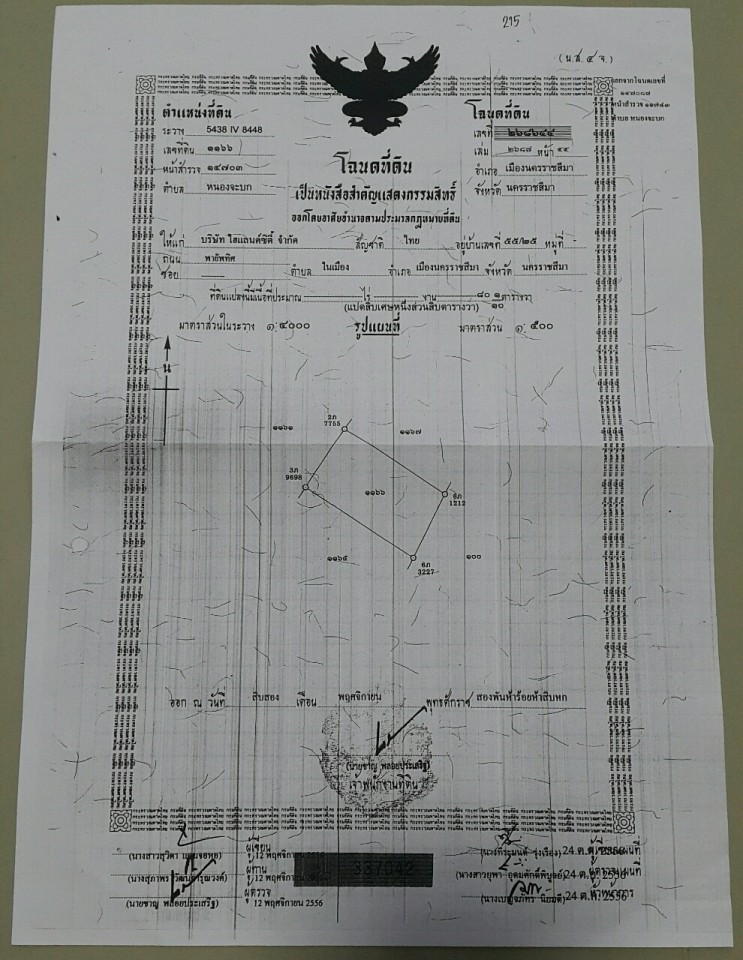 215
(น.ส. ๔ จ.)
ออกจากโฉนดเลขที่
๑๔๗๐๘๗
หน้าสำรวจ ๑๑๗๔๓
ตำบล หนองจะบก
ตำแหน่งที่ดิน
ระวาง 5438 IV 8448
เลขที่ดิน ๑๑๖๖
หน้าสำรวจ ๑๔๗๐๓
ตำบล หนองจะบก
โฉนดที่ดิน
เลขที่ ๒๖๘๖๔๔
เล่ม ๒๖๘๗ หน้า ๔๔
อำเภอ เมืองนครราชสีมา
จังหวัด นครราชสีมา
โฉนดที่ดิน
เป็นหนังสือสำคัญแสดงกรรมสิทธิ์
ออกโดยอาศัยอำนาจตามประมวลกฎหมายที่ดิน
ให้แก่ บริษัท ไฮแลนด์ซิตี้ จำกัด สัญชาติ ไทย อยู่บ้านเลขที่ ๕๕/๒๕ หมู่ที่ -
ถนน พายัพทิศ
ซอย ตำบล ในเมือง อำเภอ เมืองนครราชสีมา จังหวัด นครราชสีมา
ที่ดินแปลงนี้มีเนื้อที่ประมาณ - ไร่ - งาน ๘๐ ๑/๑๐ ตารางวา
(แปดสิบเศษหนึ่งส่วนสิบตารางวา)
มาตราส่วนในระวาง ๑:๔๐๐๐ รูปแผนที่ มาตราส่วน ๑:๕๐๐
น
๑๑๖๑
2ภ
7755
๑๑๖๗
3ภ
9698
๑๑๖๖
6ภ
1212
๑๑๖๕
6ภ
3227
๑๐๐
ออก ณ วันที่ สิบสอง เดือน พฤศจิกายน พุทธศักราช สองพันห้าร้อยห้าสิบหก
(นายชาญ พลอยประเสริฐ)
เจ้าพนักงานที่ดิน
ผู้เขียน
12 พฤศจิกายน
(นางสุภาพร วัฒนดรุณวงศ์)
ผู้ทาน
12 พฤศจิกายน
ผู้ตรวจ
(นายชาญ พลอยประเสริฐ) 12 พฤศจิกายน 2556
337042
24 ต.ค. 2556
(นางสาวยุพา อุดมศักดิ์พิบูลย์) 24 ต.ค. 2556
24 ต.ค. 2556